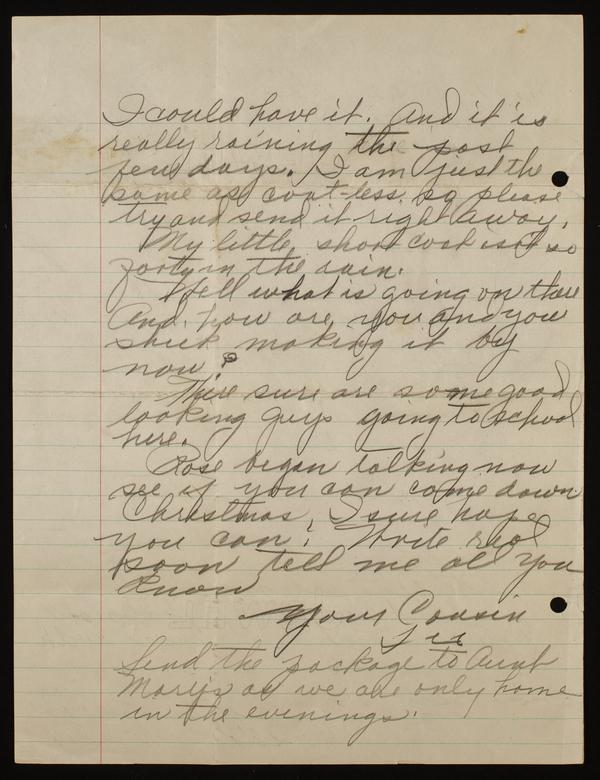 I could have it. And it is
really raining the past
few days. I am just the
same as coat-less, so please
try and send it right away.
My little short coat isn't so
in the rain.
Well what is going on there
And how are you and your
making it by
now?
There sure are some good
looking guys going to school
here.
Rose began talking now
see if you can come down
Christmas, I sure hope
you can! Write real
soon tell me all you
know
Your Cousin
Send the package to Aunt
Mary's as we are only home
in the evenings.